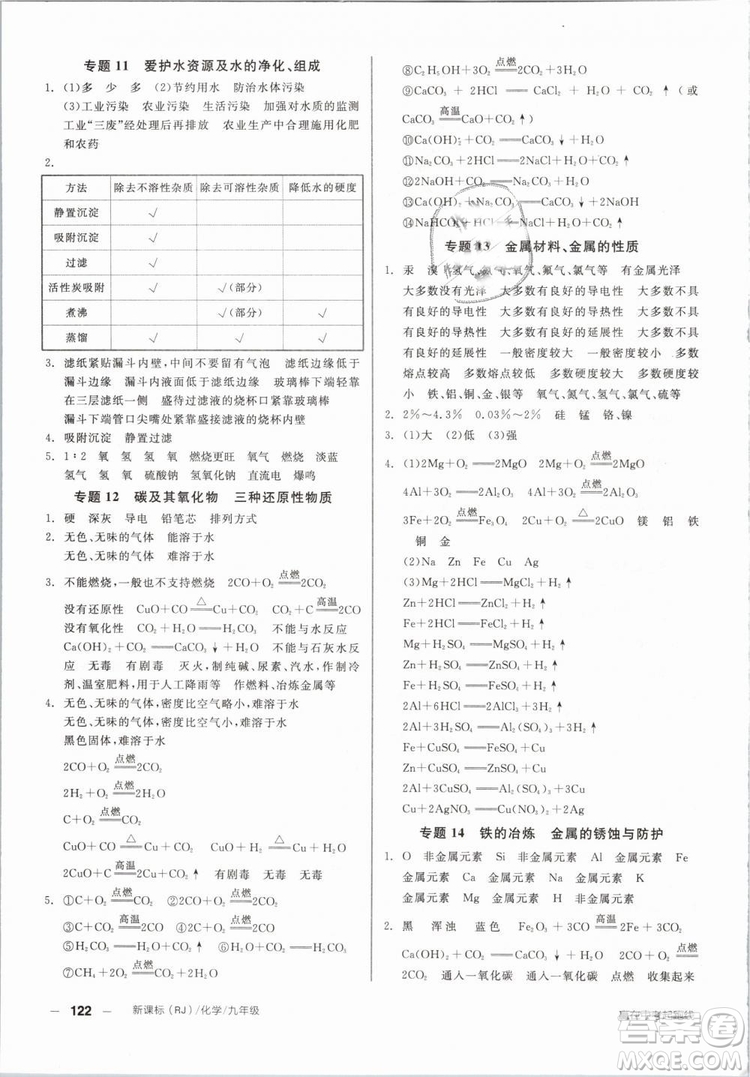 专题 11　爱护水资源及水的净化、组成
1. (1)多　少　多　(2)节约用水　防治水体污染
(3)工业污染　农业污染　生活污染　加强对水质的监测
工业“三废”经处理后再排放　农业生产中合理施用化肥
和农药
2.
方法　除去不溶性杂质　除去可溶性杂质　降低水的硬度
静置沉淀　√
吸附沉淀　√
过滤　√
活性炭吸附　√　√(部分)
煮沸　√(部分)
蒸馏　√　√　√
3. 滤纸紧贴漏斗内壁,中间不要留有气泡　滤纸边缘低于
漏斗边缘　漏斗内液面低于滤纸边缘　玻璃棒下端轻靠
在三层滤纸一侧　盛待过滤液的烧杯口紧靠玻璃棒
漏斗下端管口尖嘴处紧靠盛接滤液的烧杯内壁
4. 吸附沉淀　静置过滤
5. 1∶2　氧　氢　氧　燃烧更旺　氧气　燃烧　淡蓝
氢气　氢　氧　硫酸钠　氢氧化钠　直流电　爆鸣
专题 12　碳及其氧化物　三种还原性物质
1. 硬　深灰　导电　铅笔芯　排列方式
2. 无色、无味的气体　能溶于水
无色、无味的气体　难溶于水
3. 不能燃烧,一般也不支持燃烧　2CO+O₂ 点燃══ 2CO₂
没有还原性　CuO+CO △══ Cu+CO₂　CO₂+C 高温══ 2CO
没有氧化性　CO₂+H₂O══H₂CO₃　不能与水反应
Ca(OH)₂+CO₂══CaCO₃↓+H₂O　不能与石灰水反
应　无毒　有剧毒　灭火,制纯碱、尿素、汽水,作制冷
剂、温室肥料,用于人工降雨等　作燃料、冶炼金属等
4. 无色、无味的气体,密度比空气略小,难溶于水
无色、无味的气体,密度比空气小,难溶于水
黑色固体,难溶于水
2CO+O₂ 点燃══ 2CO₂　2H₂+O₂ 点燃══ 2H₂O
C+O₂ 点燃══ CO₂
CuO+CO △══ Cu+CO₂　CuO+H₂ △══ Cu+H₂O
2CuO+C 高温══ 2Cu+CO₂↑　有剧毒　无毒　无毒
5. ①C+O₂ 点燃══ CO₂　②C+CO₂ 高温══ 2CO　③2CO+O₂ 点燃══ 2CO₂
⑤CO₂+H₂O══H₂CO₃　⑥H₂CO₃══CO₂↑+H₂O
⑦CH₄+2O₂ 点燃══ CO₂+2H₂O
⑧C₂H₅OH+3O₂ 点燃══ 2CO₂+3H₂O
⑨CaCO₃+2HCl══CaCl₂+H₂O+CO₂↑(或
CaCO₃ 高温══ CaO+CO₂↑)
⑩Ca(OH)₂+CO₂══CaCO₃↓+H₂O
⑪Na₂CO₃+2HCl══2NaCl+H₂O+CO₂↑
⑫2NaOH+CO₂══Na₂CO₃+H₂O
⑬Ca(OH)₂+Na₂CO₃══CaCO₃↓+2NaOH
⑭NaHCO₃+HCl══NaCl+H₂O+CO₂↑
专题 13　金属材料、金属的性质
1. 汞　溴　氢气、氮气、氧气、氟气、氯气等　有金属光泽
大多数没有光泽　有良好的导电性　大多数不具
有良好的导电性　有良好的导热性　大多数不具
有良好的导热性　有良好的延展性　大多数不具
有良好的延展性　一般密度较大　密度较小　多数
熔点较高　多数熔点较低　多数硬度较大　多数硬度
较小　铁、铝、铜、金、银等　氧气、氮气、氢气、氯气、硫、碳
2. 2%～4.3%　0.03%～2%　硅　锰　铬、镍
3. (1)大　(2)低　(3)强
4. (1)2Mg+O₂ 点燃══ 2MgO　2Mg+O₂══2MgO
4Al+3O₂ 点燃══ 2Al₂O₃　4Al+3O₂══2Al₂O₃
3Fe+2O₂ 点燃══ Fe₃O₄　2Cu+O₂ △══ 2CuO　镁　铝　铁
铜　金
(2)Na　Zn　Fe　Cu　Ag
(3)Mg+2HCl══MgCl₂+H₂↑
Zn+2HCl══ZnCl₂+H₂↑
Fe+2HCl══FeCl₂+H₂↑
Mg+H₂SO₄══MgSO₄+H₂↑
Zn+H₂SO₄══ZnSO₄+H₂↑
Fe+H₂SO₄══FeSO₄+H₂↑
2Al+6HCl══2AlCl₃+3H₂↑
2Al+3H₂SO₄══Al₂(SO₄)₃+3H₂↑
Fe+CuSO₄══FeSO₄+Cu
Zn+CuSO₄══ZnSO₄+Cu
2Al+3CuSO₄══Al₂(SO₄)₃+3Cu
Cu+2AgNO₃══Cu(NO₃)₂+2Ag
专题 14　铁的冶炼　金属的锈蚀与防护
1. O　非金属元素　Si　非金属元素　Al　金属元素　Fe
金属元素　Ca　金属元素　Na　金属元素　K
金属元素　Mg　金属元素　H　非金属元素
2. 黑　浑浊　蓝色　Fe₂O₃+3CO 高温══ 2Fe+3CO₂
Ca(OH)₂+CO₂══CaCO₃↓+H₂O　2CO+O₂ 点燃══
2CO₂　通入一氧化碳　通入一氧化碳　点燃　收集起来
122　新课标(RJ)/化学/九年级
赢在中考起跑线
答案圈